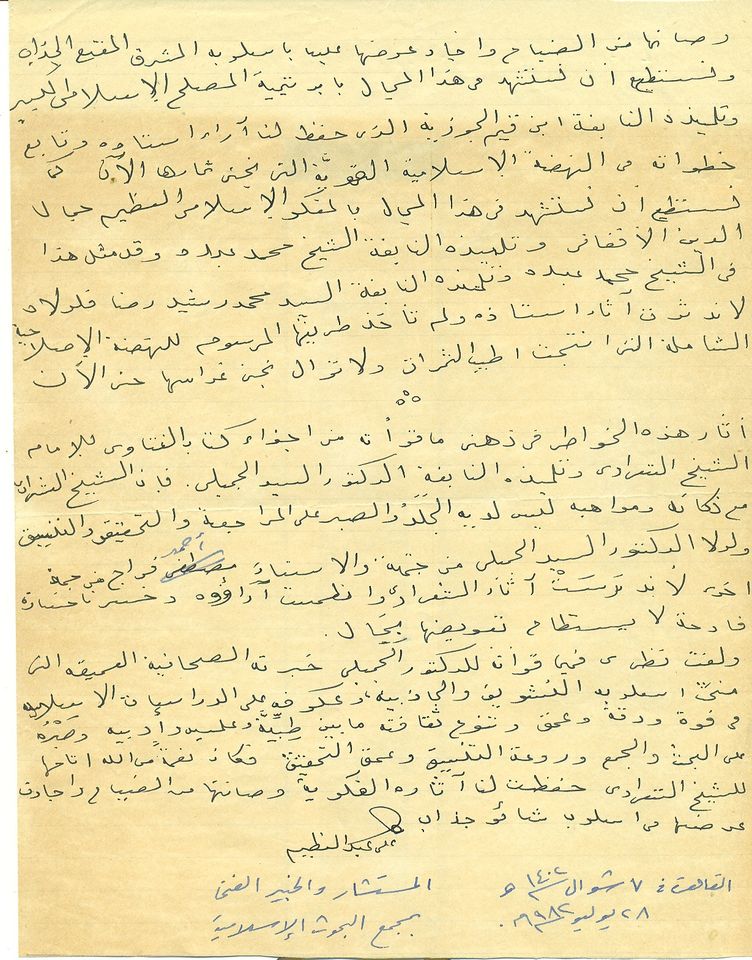 وصانها من الضياع وأجاد عرضها علينا بأسلوبه المشرق المقنع الجذاب
ونستطيع أن نستشهد فى هذا المجال بابن تيمية المصلح الإسلامى الكبير
وتلميذه النابغة ابن قيم الجوزية الذى حفظ لنا آراء استاذه وتابع
خطواته فى النهضة الإسلامية القوية التى نجنى ثمارها الآن كما
نستطيع أن نستشهد فى هذا المجال بالمفكر الإسلامى العظيم جمال
الدين الأفغانى وتلميذه النابغة الشيخ محمد عبده وقد مثل هذا
فى الشيخ محمد عبده وتلميذه النابغة السيد محمد رشيد رضا فلولاه
لاندثرت آثار استاذه ولم تأخذ طريقها المرسوم للنهضة الإصلاحية
الشاملة التى انتجت اطيب الثمرات ولا نزال نجنى غراسها حتى الآن
أثار هذه الخواطر فى ذهنى ما قرأته من اجزاء كتاب الفتاوى للأمام
الشيخ الشعراوى وتلميذه النابغة الدكتور السيد الجميلى. فإن الشيخ الشعراوى
مع ذكائه ومواهبه ليس لديه الجَلَدُ والصبر على المراجعة والتحقيق والتنسيق
ولولا الدكتور السيد الجميلى من جهة والاستاذ أحمد فراج من جهة
اخرى لاندَرَسَتْ آثار الشعراوى وانطمست آراؤه وخسرنا خسارة
فادحة لا يستطاع تعويضها بِحَال.
ولفت نظرى فيما قرأت للدكتور الجميلى خبرته الصحافية العميقة التى
اسلوبه التشويق والجاذبية، وعكوفه على الدراسات الاسلامية
فى قوة ودقة وعمق وتنوع ثقافته ما بين طِبِّيَّة وعلمية وأدبية وصَبْرُهُ
على البحث والجمع وروعة التنسيق وعمق التحقيق فكان نعمة من الله اتاحها
للشيخ الشعراوى حفظت لنا آثاره الفكرية وصانتها من الضياع واجادت
عرضها فى اسلوب شائق جذاب
على عبد العظيم
القاهرة فى ٧ شوال ١٤٠٢ هـ المستشار والخبير الفنى
٢٨ يوليو ١٩٨٢ م. بمجمع البحوث الإسلامية